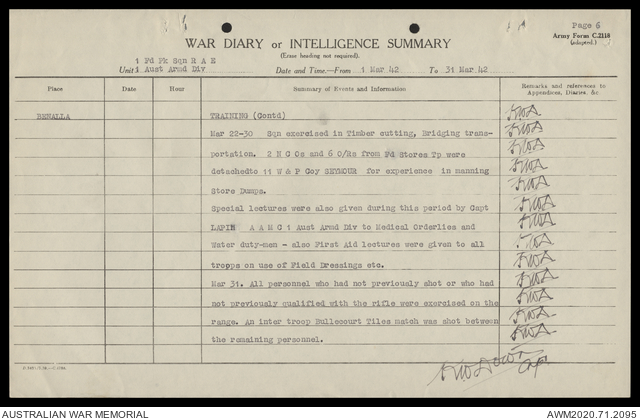 Page 6
WAR DIARY or INTELLIGENCE SUMMARY
Army Form C.2118
(adapted.)
(Erase heading not required).
1 Fd Pk Sqn R A E
Unit: Aust Armd Div
Date and Time.—From 1 Mar 42 To 31 Mar 42
Place Date Hour Summary of Events and Information Remarks and references to Appendices, Diaries, &c
BENALLA TRAINING (Contd)
Mar 22-30 Sqn exercised in Timber cutting, Bridging trans-
portation. 2 N C Os and 6 O/Rs from Fd Stores Tp were
detachedto 11 W & P Coy SEYMOUR for experience in manning
Store Dumps.
Special lectures were also given during this period by Capt
LAPIN A A M C 1 Aust Armd Div to Medical Orderlies and
Water duty-men - also First Aid lectures were given to all
tropps on use of Field Dressings etc.
Mar 31. All personnel who had not previously shot or who had
not previously qualified with the rifle were exercised on the
range. An inter troop Bullecourt Tiles match was shot between
the remaining personnel.
Capt
AUSTRALIAN WAR MEMORIAL AWM2020.71.2095